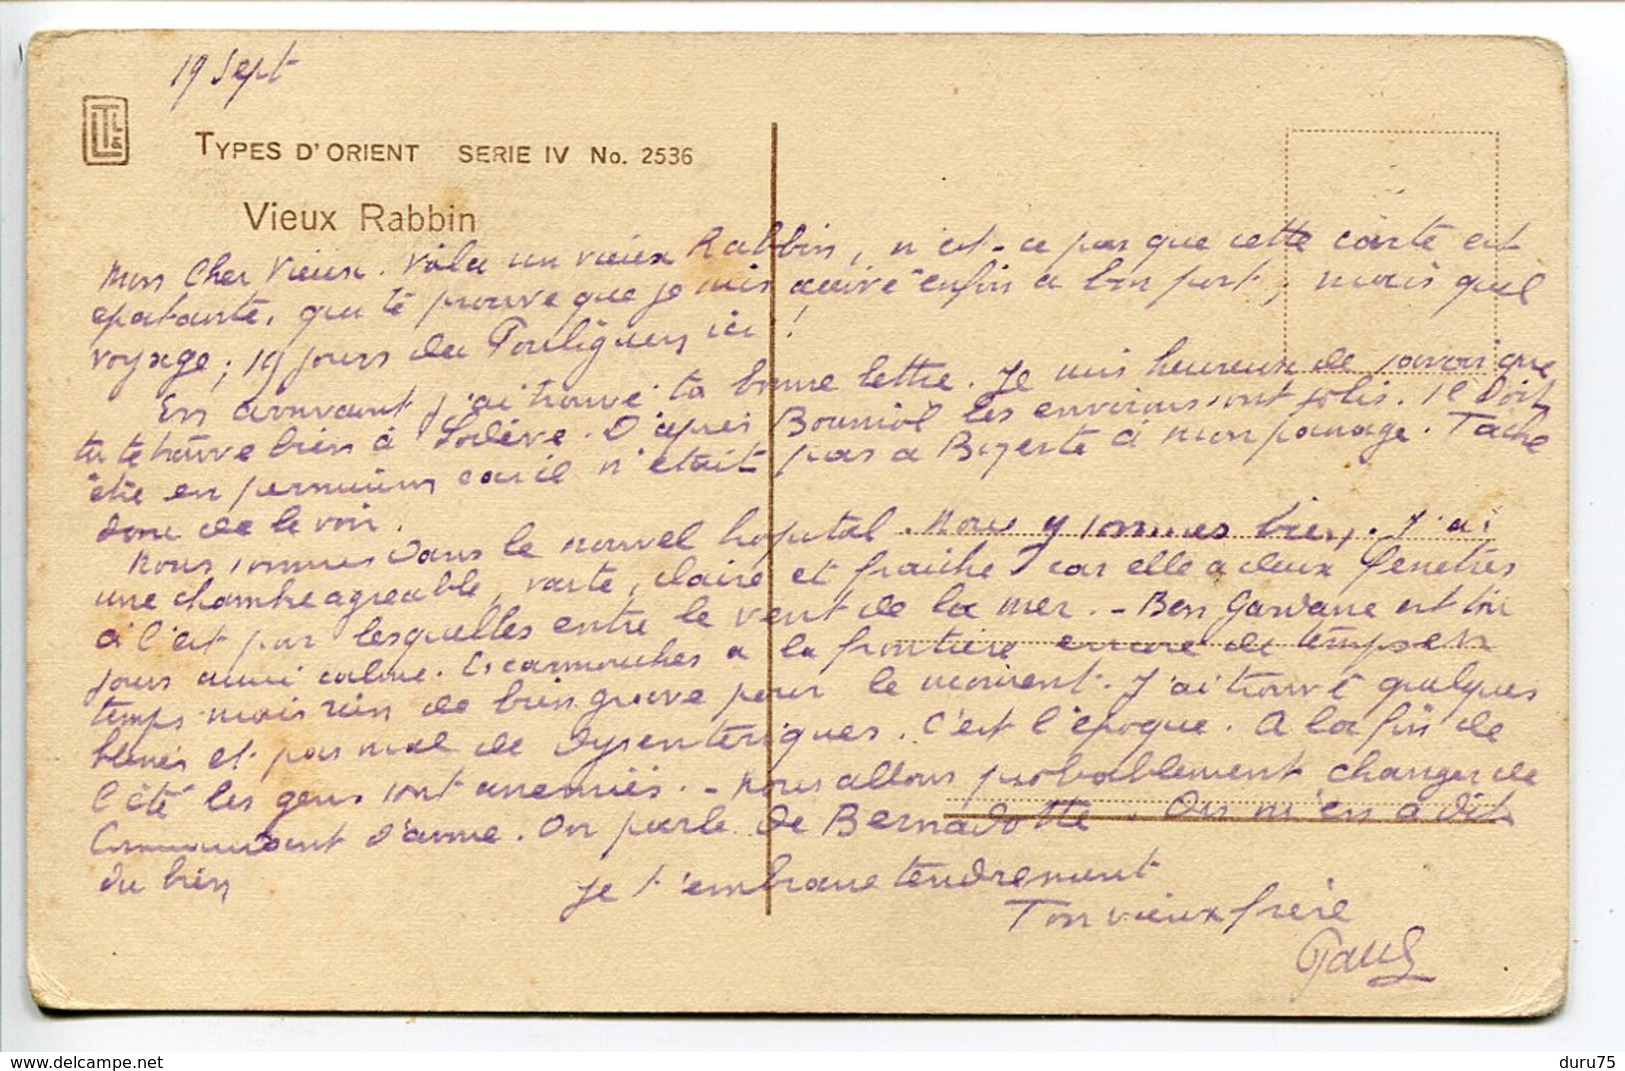 19 Sept
TYPES D'ORIENT SERIE IV No. 2536
Vieux Rabbin
Mon Cher Vieux. Voila un vieux Rabbin, n'est-ce pas que cette carte est
epatante, qui te prouve que je suis arrivé enfin a bon port, mais quel
voyage; 19 jours du Pouliguen ici !
En arrivant j'ai trouvé ta bonne lettre. Je suis heureux de savoir que
tu te trouve bien à Lodève. D'apres Bouniol les environs sont jolis. Il doit
être en permission car il n'était pas a Bizerte à mon passage. Tache
donc de le voir.
Nous sommes dans le nouvel hopital. Nous y sommes bien. J'ai
une chambre agreable, vaste, claire et fraiche car elle a deux fenetres
à l'est par lesquelles entre le vent de la mer. - Ben Gardane est tou
jours aussi calme. Escarmouches a la frontiere encore de temps en
temps mais rien de bien grave pour le moment. J'ai trouvé quelques
blessés et pas mal de dysenteriques. C'est l'époque. A la fin de
l'été les gens sont anemiés. - Nous allons probablement changer de
Commandant d'arme. On parle de Bernadotte. On m'en a dit
du bien
Je t'embrasse tendrement
Ton vieux frère
Paul
www.delcampe.net
duru75